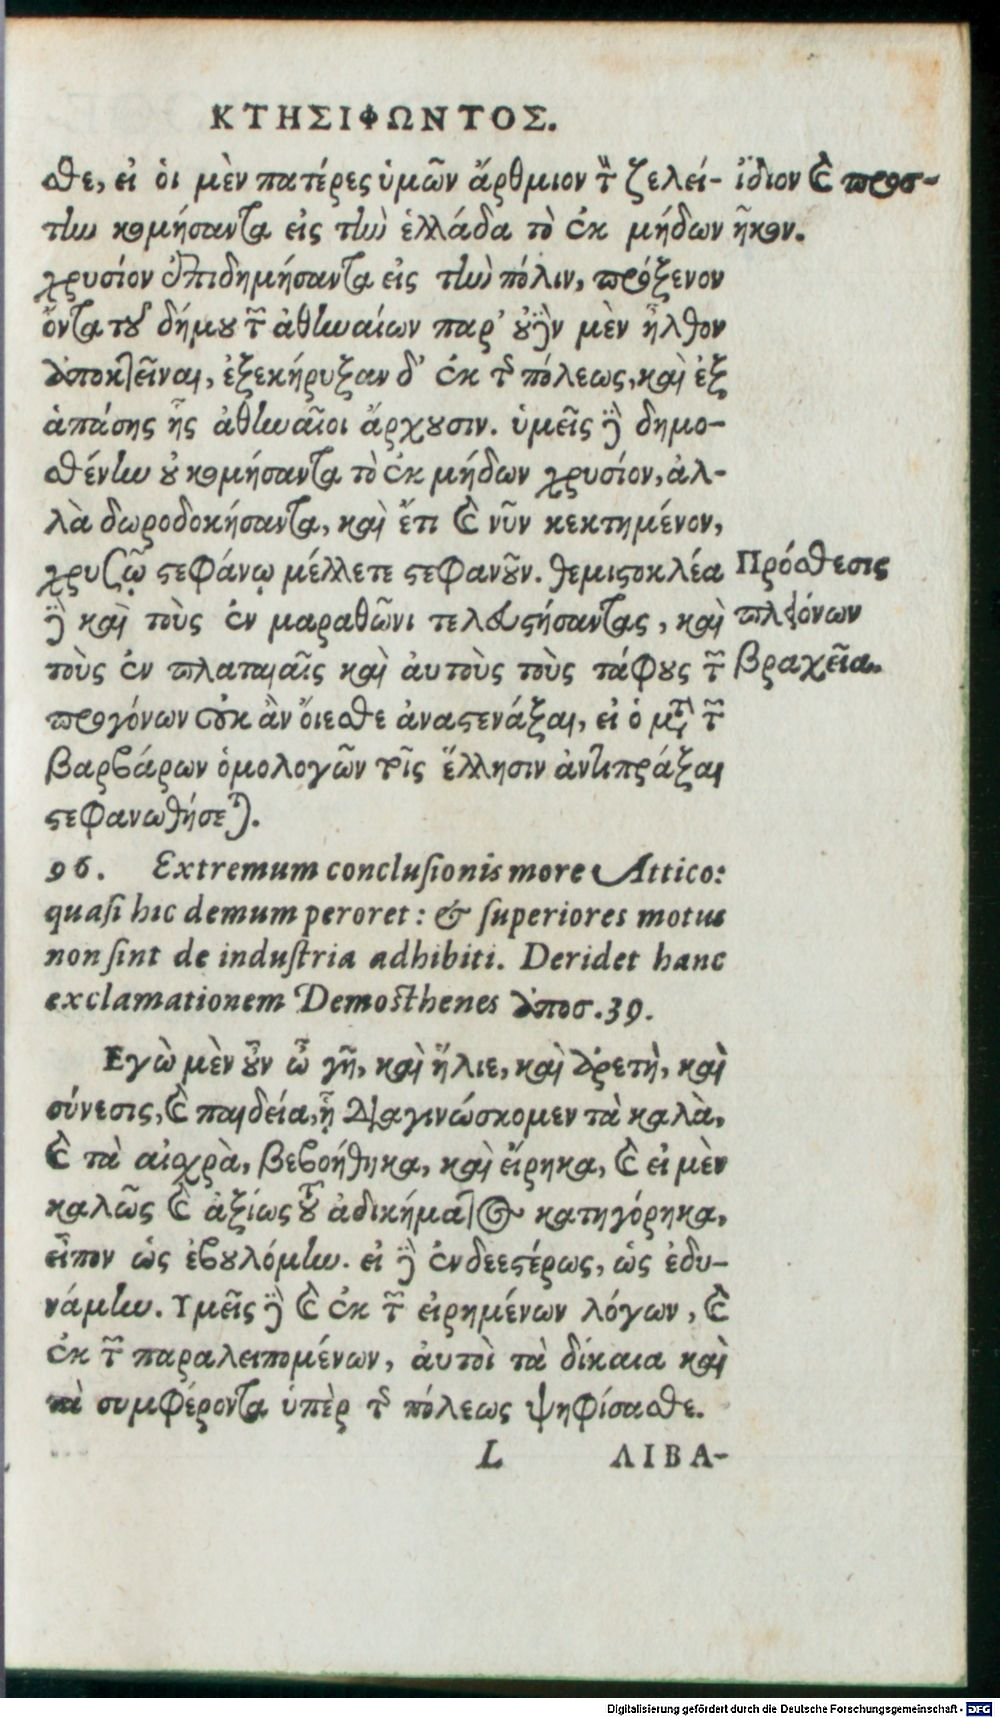 ΚΤΗΣΙΦΩΝΤΟΣ.
σθε, εἰ οἱ μὲν πατέρες ὑμῶν ἄρθμιον τὸν ζελεί-
την κομήσαντα εἰς τὴν ἑλλάδα τὸ ἐκ μήδων
χρυσίον ἐπιδημήσαντα εἰς τὴν πόλιν, πρόξενον
ὄντα τοῦ δήμου τῶν ἀθηναίων παρ' οὐδὲν μὲν ἦλθον
ἀποκτεῖναι, ἐξεκήρυξαν δ' ἐκ τῆς πόλεως, καὶ ἐξ
ἁπάσης ἧς ἀθηναῖοι ἄρχουσιν. ὑμεῖς δὲ δημο-
σθένην οὐ κομήσαντα τὸ ἐκ μήδων χρυσίον, ἀλ-
λὰ δωροδοκήσαντα, καὶ ἔτι καὶ νῦν κεκτημένον,
χρυσῷ στεφάνῳ μέλλετε στεφανοῦν. θεμιστοκλέα
δὲ καὶ τοὺς ἐν μαραθῶνι τελευτήσαντας, καὶ
τοὺς ἐν πλαταιαῖς καὶ αὐτοὺς τοὺς τάφους τῶν
προγόνων οὐκ ἂν οἴεσθε ἀναστενάξαι, εἰ ὁ μετὰ τῶν
βαρβάρων ὁμολογῶν τοῖς ἕλλησιν ἀντιπράξαι
στεφανωθήσεται.
ἴδιον καὶ προσ-
ῆκον.
Πρόσθεσις
πλεόνων
βραχεῖα.
96. Extremum conclusionis more Attico:
quasi hic demum peroret: & superiores motus
non sint de industria adhibiti. Deridet hanc
exclamationem Demosthenes ἀποσ. 39.
Εγὼ μὲν οὖν ὦ γῆ, καὶ ἥλιε, καὶ ἀρετὴ, καὶ
σύνεσις, καὶ παιδεία, ᾗ διαγινώσκομεν τὰ καλὰ,
καὶ τὰ αἰσχρὰ, βεβοήθηκα, καὶ εἴρηκα, καὶ εἰ μὲν
καλῶς καὶ ἀξίως τοῦ ἀδικήματος κατηγόρηκα,
εἶπον ὡς ἐβουλόμην. εἰ δὲ ἐνδεεστέρως, ὡς ἐδυ-
νάμην. Υμεῖς δὲ καὶ ἐκ τῶν εἰρημένων λόγων, καὶ
ἐκ τῶν παραλειπομένων, αὐτοὶ τὰ δίκαια καὶ
τὰ συμφέροντα ὑπὲρ τῆς πόλεως ψηφίσασθε.
L ΛΙΒΑ-
Digitalisierung gefördert durch die Deutsche Forschungsgemeinschaft - DFG